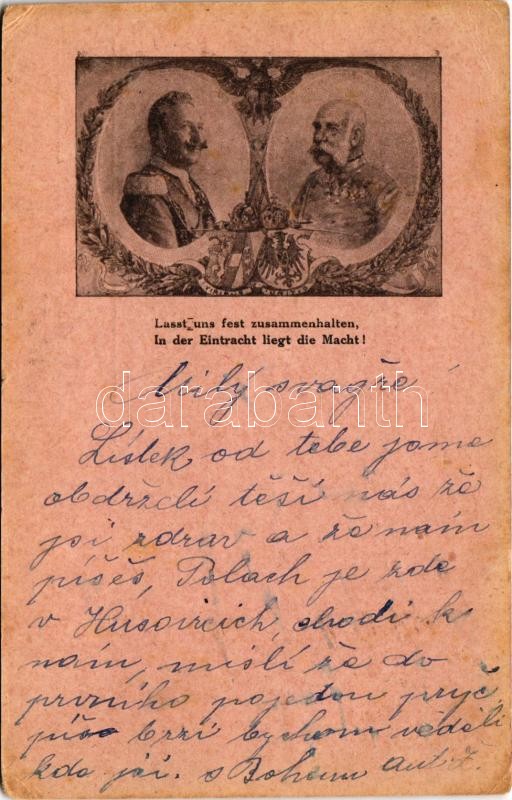 Lasst uns fest zusammenhalten,
In der Eintracht liegt die Macht!
Milý svagře
darabanth
Lístek od tebe jsme
obdrželi těší nás že
jsi zdrav a že nám
píšeš, Polach je zde
v Husovicích, chodí k
nám, myslí že do
prvního pojedou pryč
piš brzi bychom věděli
kde jsi. s Bohem